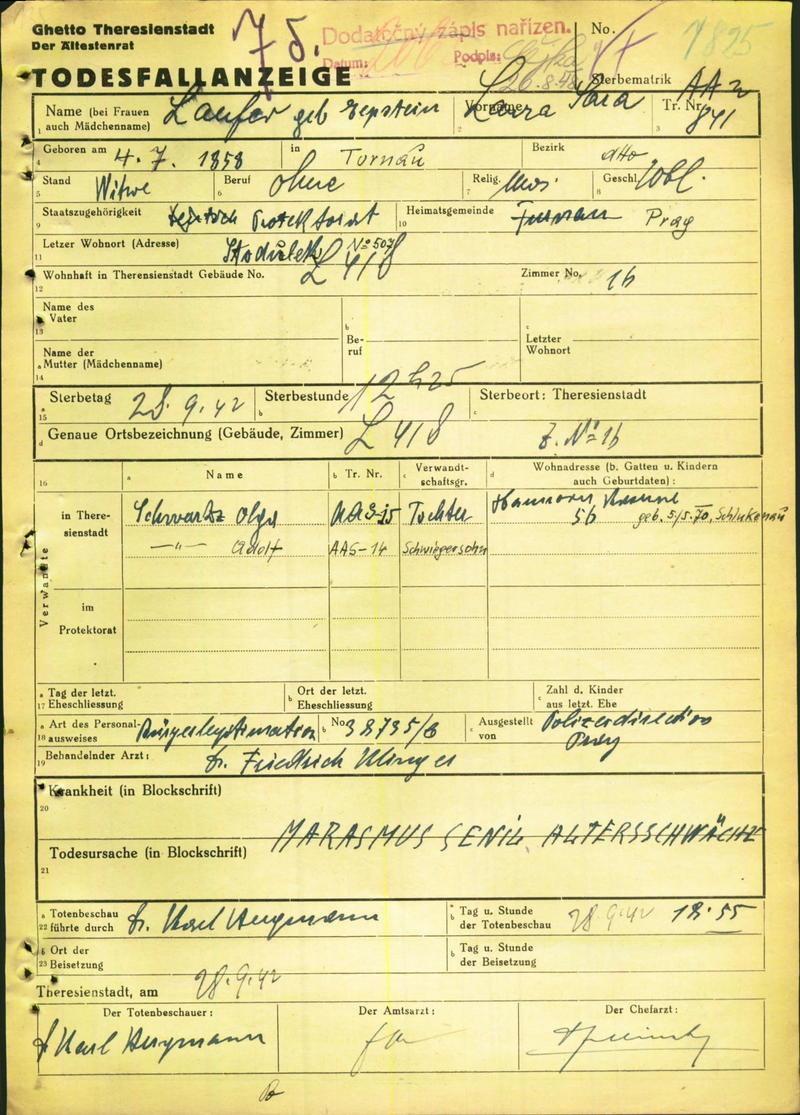 Ghetto Theresienstadt
Der Ältestenrat
Dodatočný zápis nařízen.
Datum:
Podpis:
26.8.48
No.
7825
TODESFALLANZEIGE
Sterbematrik
Name (bei Frauen auch Mädchenname) Laufer geb Eepstein
Vorname Sara
Tr. Nr. AAn 841
1 2 3
4 Geboren am 4. 7. 1858 in Turnau Bezirk dtto
5 Stand Witwe 6 Beruf ohne 7 Relig. Mos. 8 Geschl. Wbl.
9 Staatszugehörigkeit Protektorat 10 Heimatsgemeinde Prag
11 Letzer Wohnort (Adresse) Stodulek No 502
12 Wohnhaft in Therensienstadt Gebäude No. L 418 Zimmer No. 16
13 Name des Vater
b Beruf
c Letzter Wohnort
14 a Name der Mutter (Mädchenname)
15 a Sterbetag 28. 9. 42 b Sterbestunde 12 h 25 c Sterbeort: Theresienstadt
d Genaue Ortsbezeichnung (Gebäude, Zimmer) L 418 Z. No 16
16 a Name b Tr. Nr. c Verwandtschaftsgr. d Wohnadresse (b. Gatten u. Kindern auch Geburtdaten):
Verwandte
in Theresienstadt Schwartz Olga AAS-15 Tochter 56 geb. 5/5. 70, Schinkenau
—"— Adolf AAS-14 Schwiegersohn
im Protektorat
17 a Tag der letzt. Eheschliessung b Ort der letzt. Eheschliessung c Zahl d. Kinder aus letzt. Ehe
18 a Art des Personalausweises Bürgerlegitimation b No. 38735/6 c Ausgestellt von Polizeidirection Prag
19 Behandelnder Arzt: Dr. Friedrich
20 Krankheit (in Blockschrift)
MARASMUS SENIL ALTERSSCHWÄCHE
21 Todesursache (in Blockschrift)
22 a Totenbeschau führte durch Dr. Karl Bergmann b Tag u. Stunde der Totenbeschau 28 9. 42 18.55
23 a Ort der Beisetzung b Tag u. Stunde der Beisetzung
Theresienstadt, am 28. 9. 42
Der Totenbeschauer: Der Amtsarzt: Der Chefarzt:
Dr Karl Bergmann